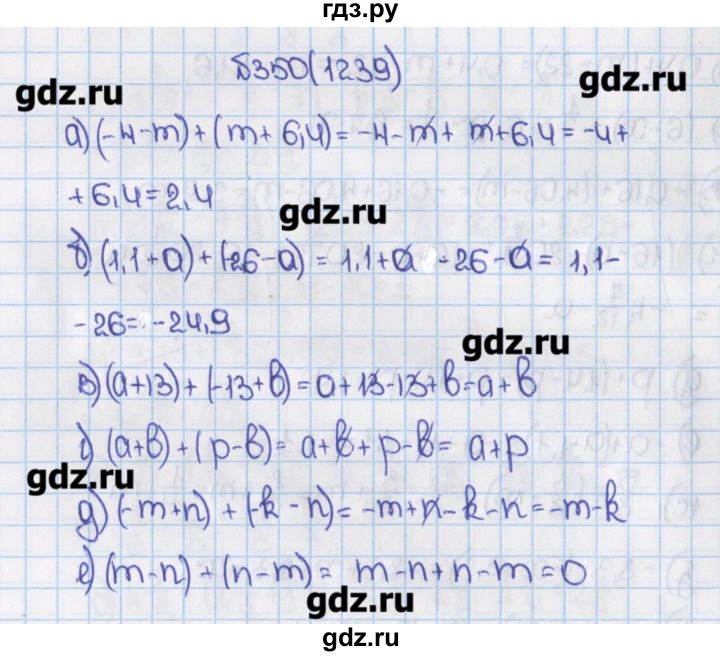 гдз.ру
№350(1239)
gdz.ru
gdz.ru
а) (-4-m) + (m+6,4) = -4-m+m+6,4 = -4+
+6,4=2,4
gdz.ru
б) (1,1+a) + (-26-a) = 1,1+a-26-a = 1,1-
-26=-24,9
gdz.ru
в) (a+13) + (-13+в) = a+13-13+в=a+в
г) (a+в) + (p-в) = a+в+p-в= a+p
gdz.ru
д) (-m+n) + (-k-n) = -m+n-k-n=-m-k
е) (m-n) + (n-m) = m-n+n-m=0
gdz.ru
gdz.ru